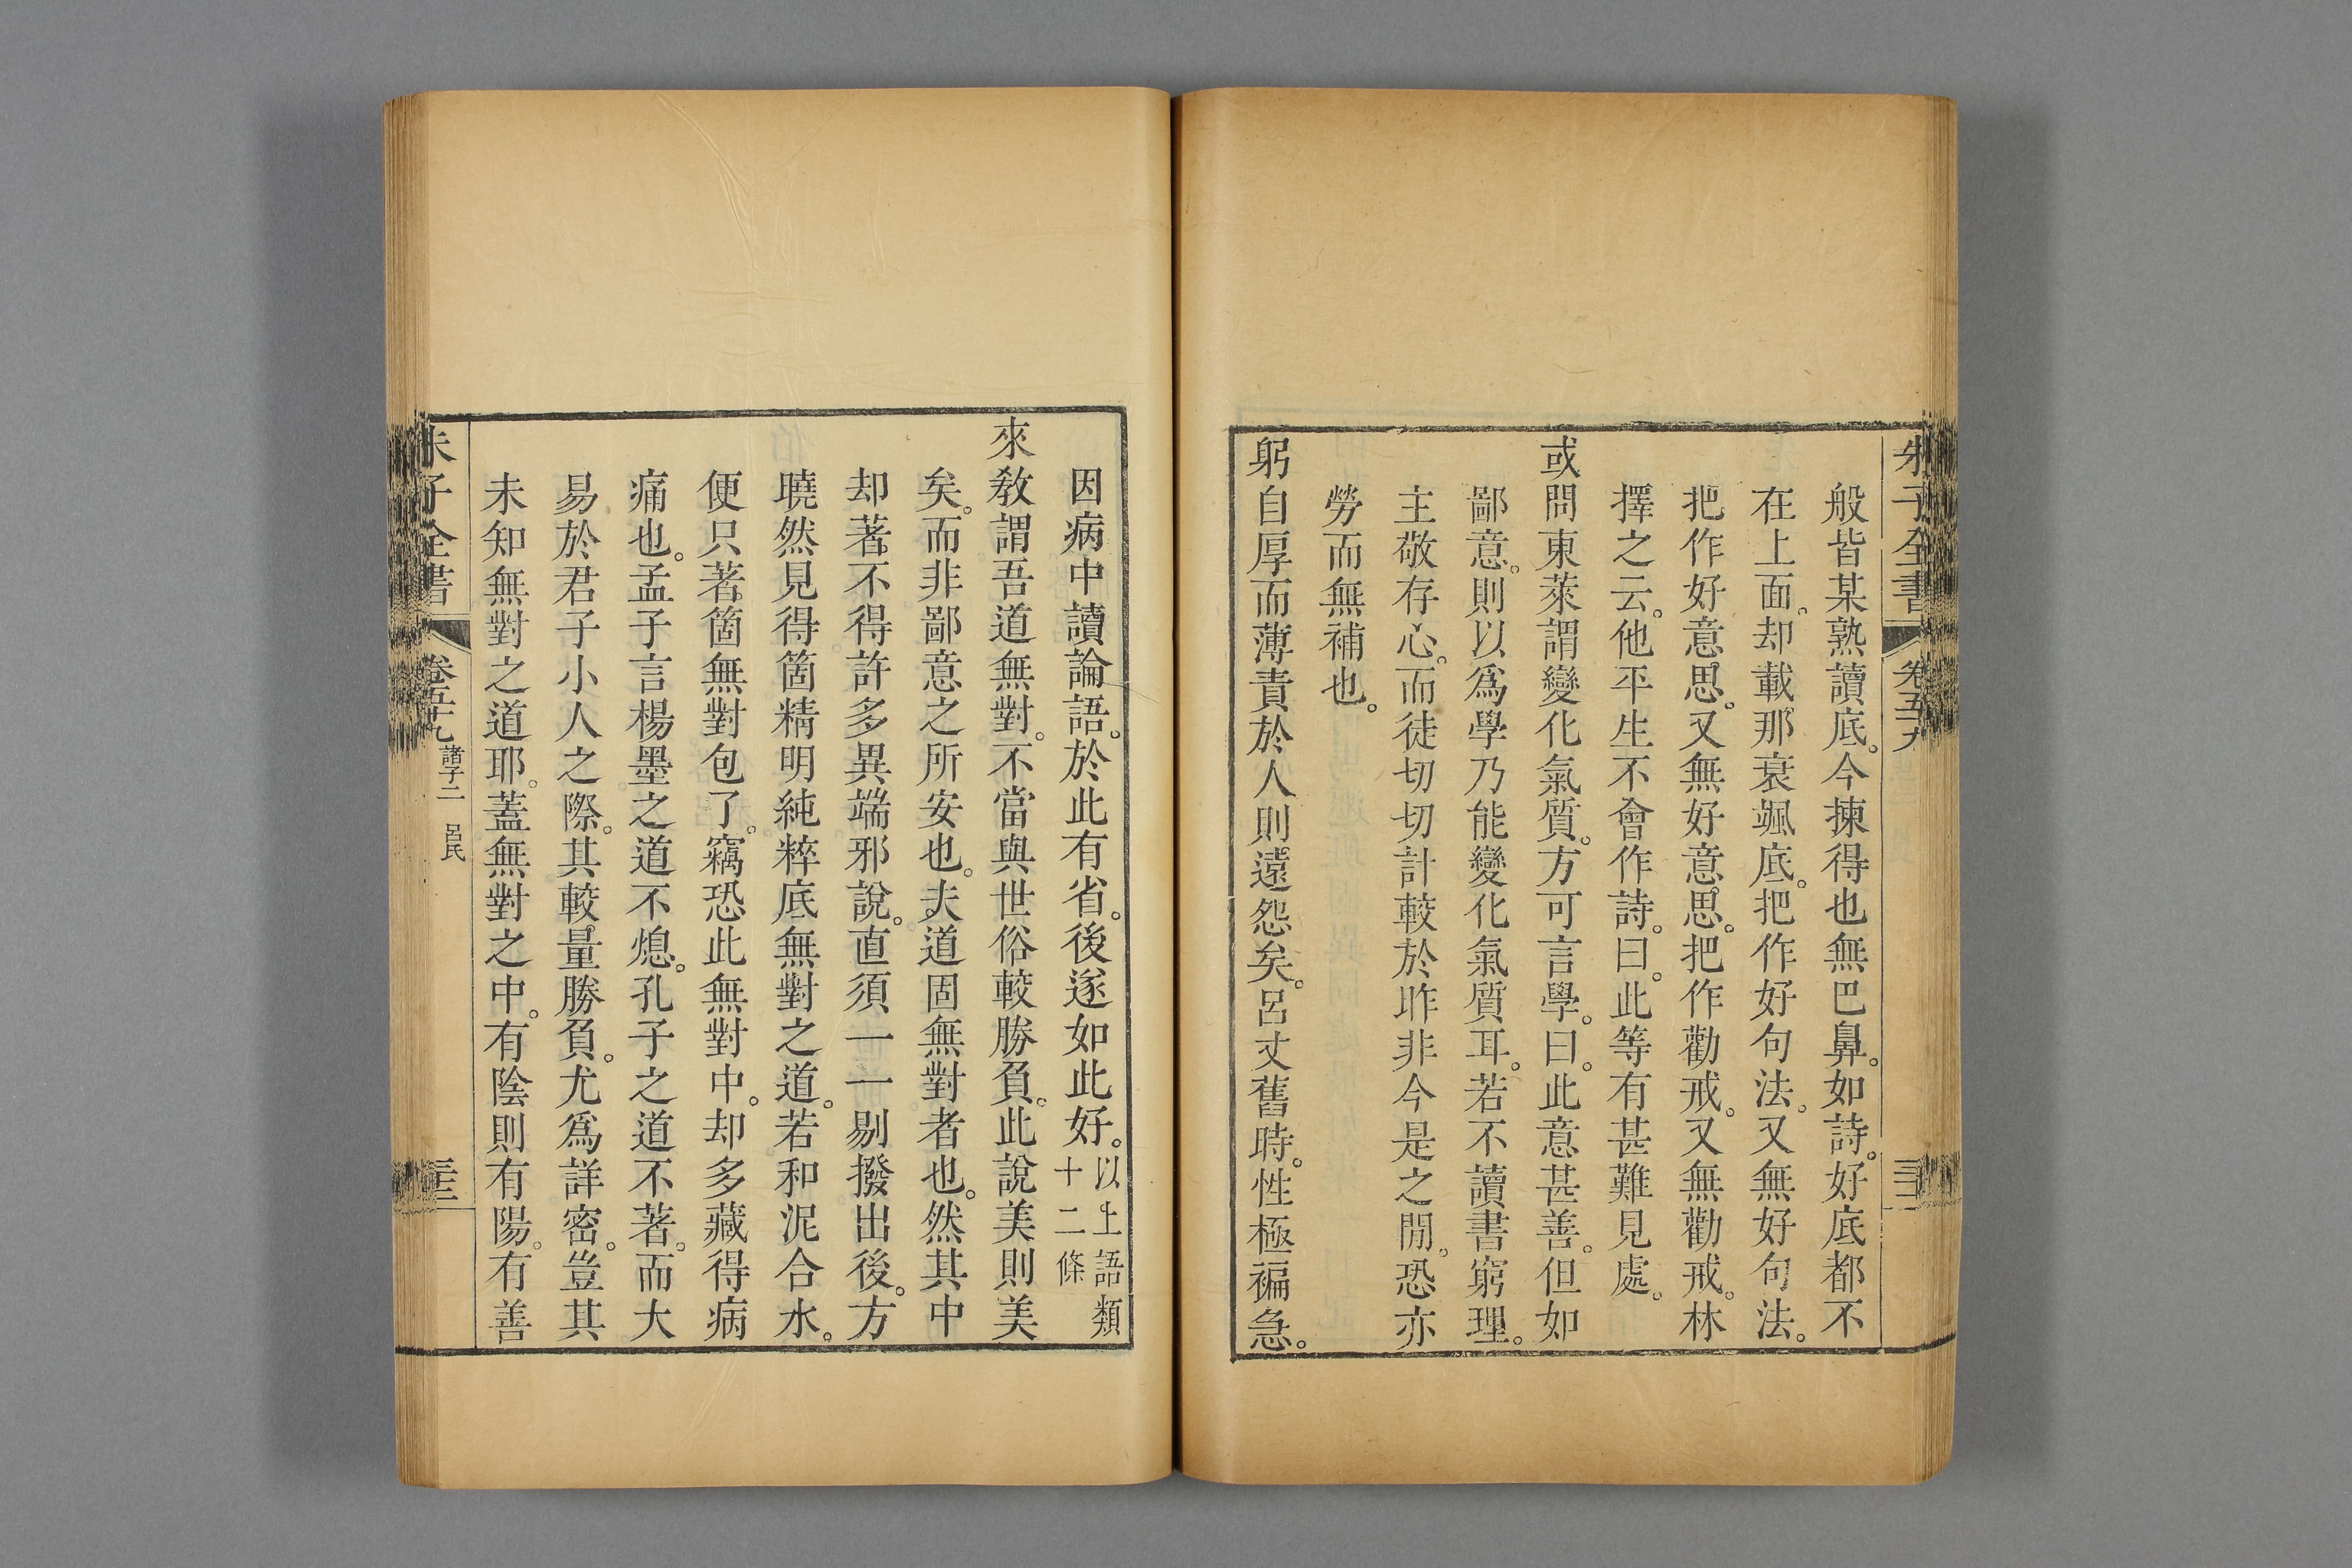 朱子全書 卷五十九
般皆某熟讀底。今揀得也無巴鼻。如詩。好底都不
在上面。却載那衰颯底。把作好句法。又無好句法。
把作好意思。又無好意思。把作勸戒。又無勸戒。林
擇之云。他平生不會作詩。曰。此等有甚難見處。
或問東萊謂變化氣質。方可言學。曰。此意甚善。但如
鄙意。則以爲學乃能變化氣質耳。若不讀書窮理。
主敬存心。而徒切切計較於昨非今是之閒。恐亦
勞而無補也。
躬自厚而薄責於人則遠怨矣。呂丈舊時。性極褊急。
因病中讀論語。於此有省。後遂如此好。以上語類
十二條
來敎謂吾道無對。不當與世俗較勝負。此說美則美
矣。而非鄙意之所安也。夫道固無對者也。然其中
却著不得許多異端邪說。直須一一剔撥出後。方
曉然見得箇精明純粹底無對之道。若和泥合水。
便只著箇無對包了。竊恐此無對中。却多藏得病
痛也。孟子言楊墨之道不熄。孔子之道不著。而大
易於君子小人之際。其較量勝負。尤爲詳密。豈其
未知無對之道耶。蓋無對之中。有陰則有陽。有善
朱子全書 卷五十九 諸子二 呂氏